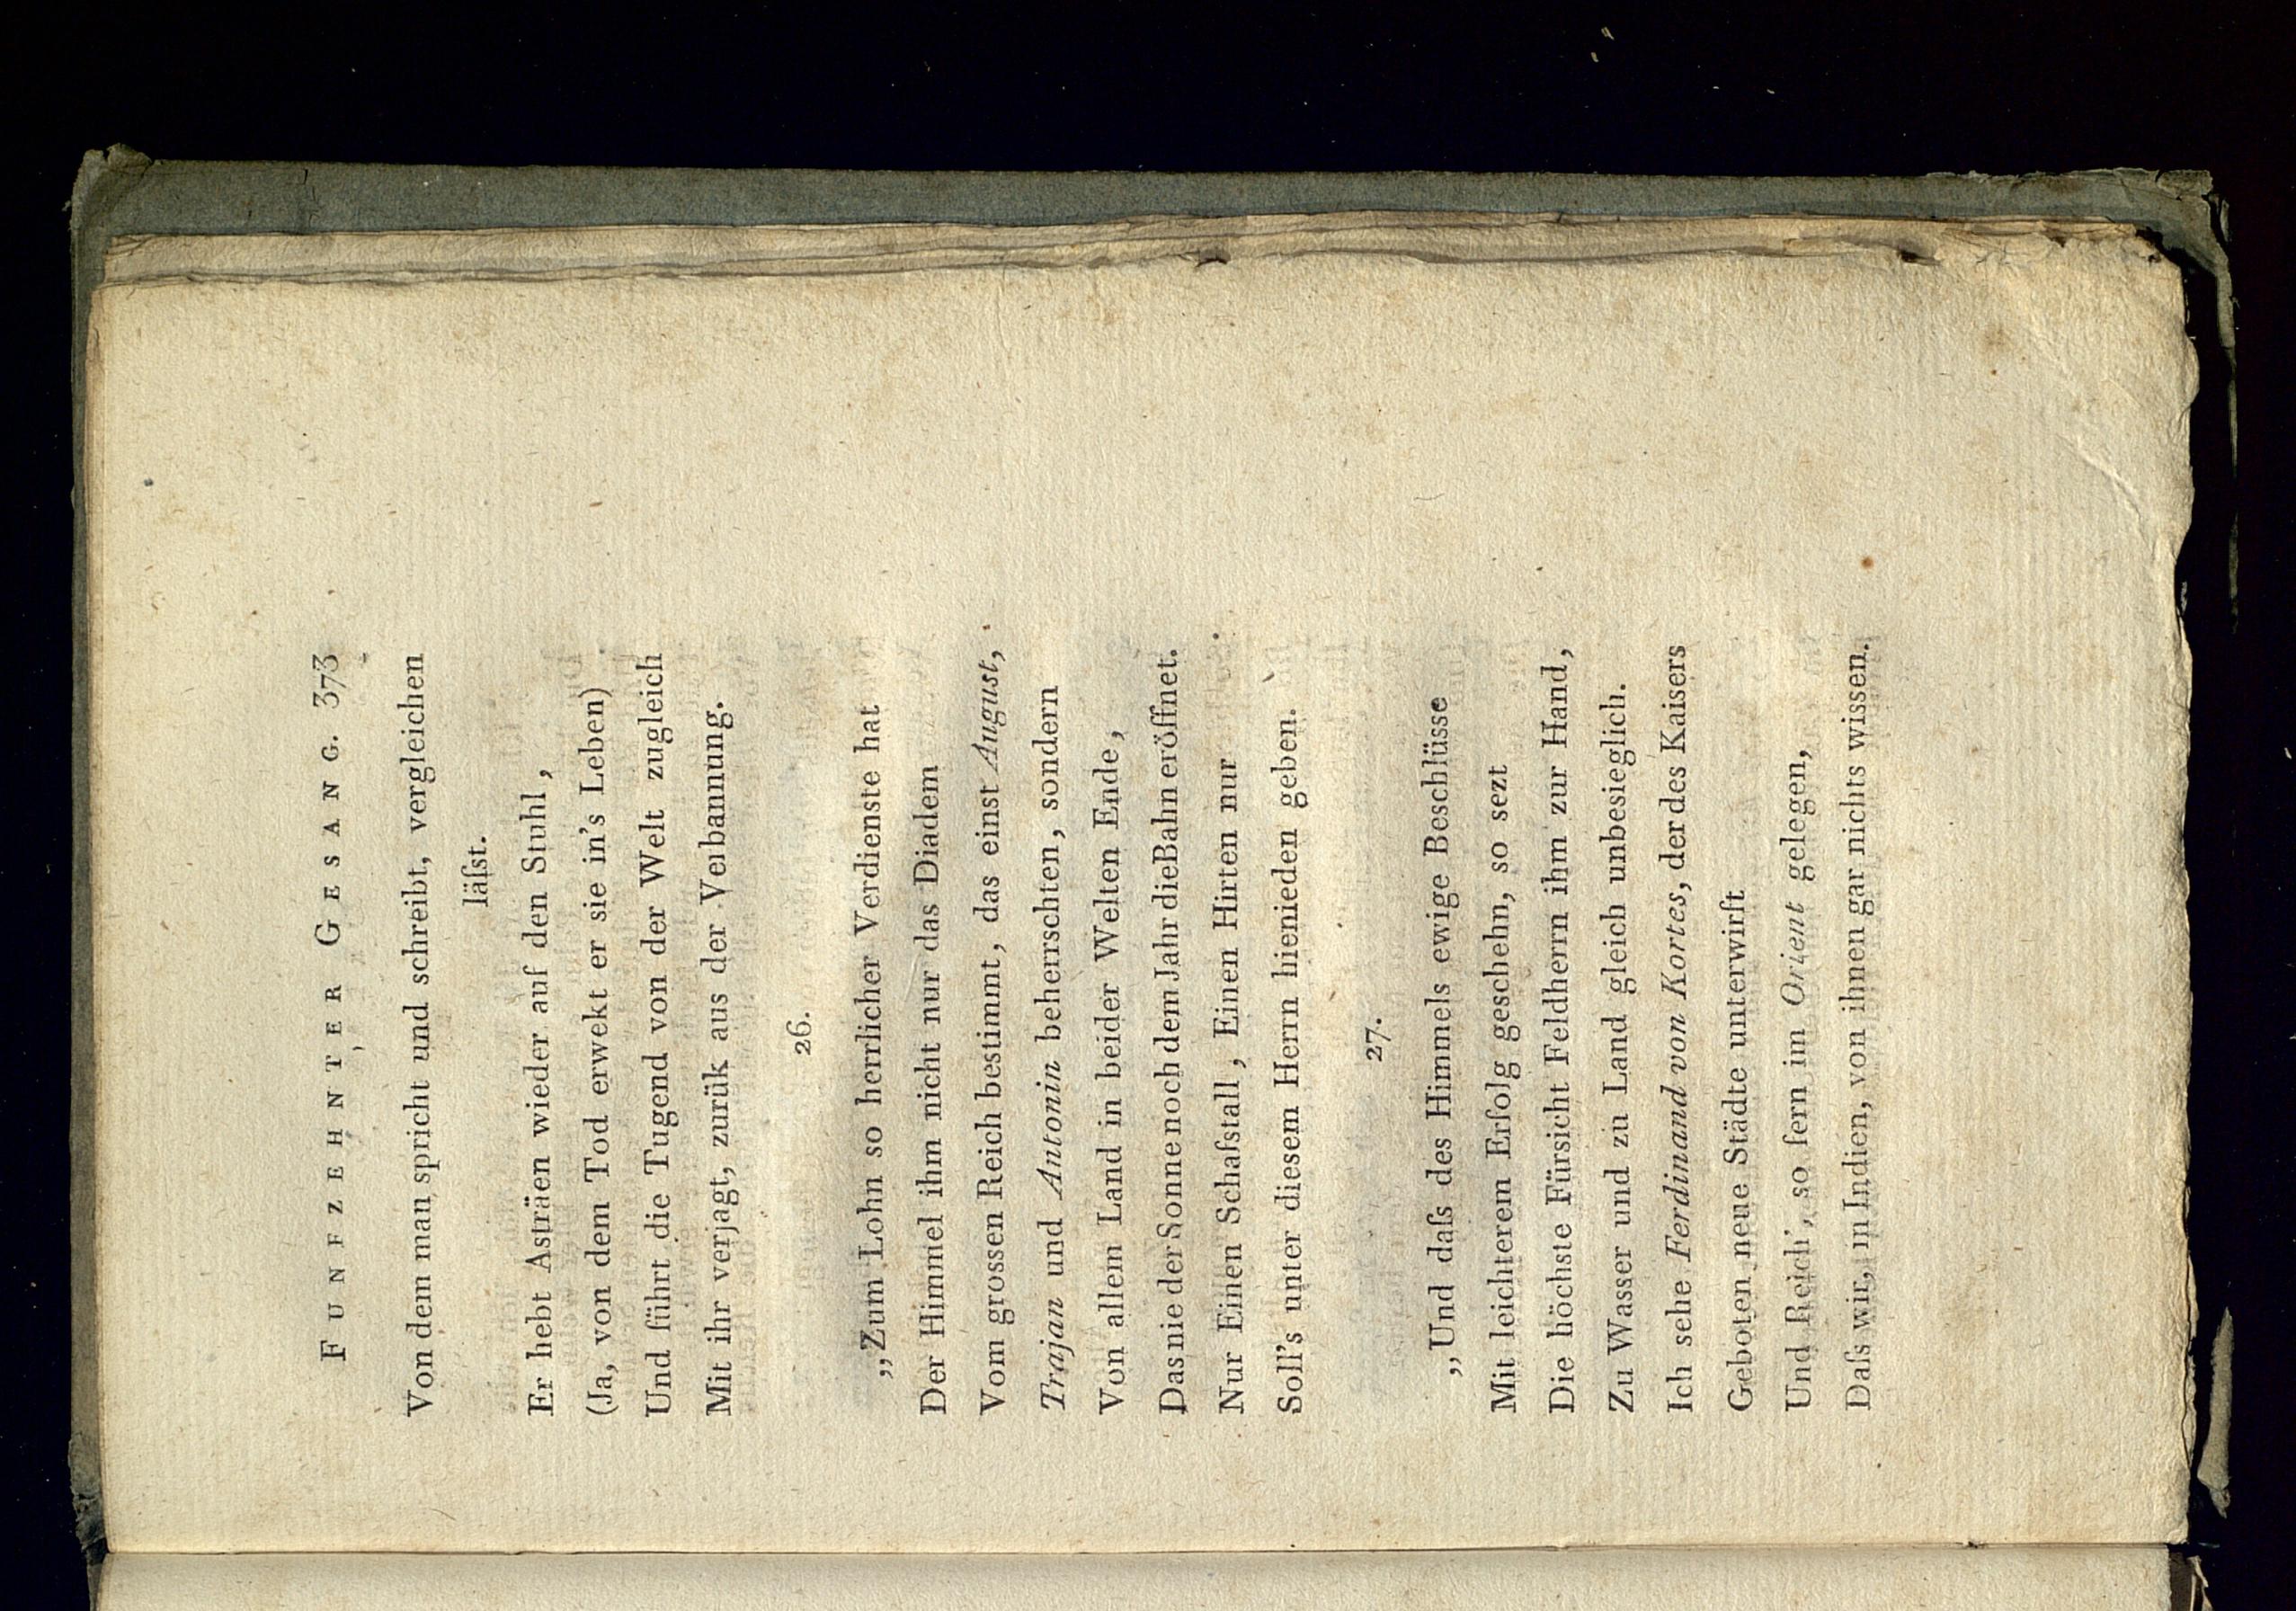 FUNFZEHNTER GESANG. 373
Von dem man spricht und schreibt, vergleichen
läſst.
Er hebt Asträen wieder auf den Stuhl,
(Ja, von dem Tod erwekt er sie in's Leben)
Und führt die Tugend von der Welt zugleich
Mit ihr verjagt, zurük aus der Verbannung.
26.
„Zum Lohn so herrlicher Verdienste hat
Der Himmel ihm nicht nur das Diadem
Vom grossen Reich bestimmt, das einst August,
Trajan und Antonin beherrschten, sondern
Von allem Land in beider Welten Ende,
Das nie der Sonne noch dem Jahr die Bahn eröffnet.
Nur Einen Schafstall, Einen Hirten nur
Soll's unter diesem Herrn hienieden geben.
27.
„Und daſs des Himmels ewige Beschlüsse
Mit leichterem Erfolg geschehn, so sezt
Die höchste Fürsicht Feldherrn ihm zur Hand,
Zu Wasser und zu Land gleich unbesieglich.
Ich sehe Ferdinand von Kortes, der des Kaisers
Geboten neue Städte unterwirft
Und Reich', so fern im Orient gelegen,
Daſs wir, in Indien, von ihnen gar nichts wissen.